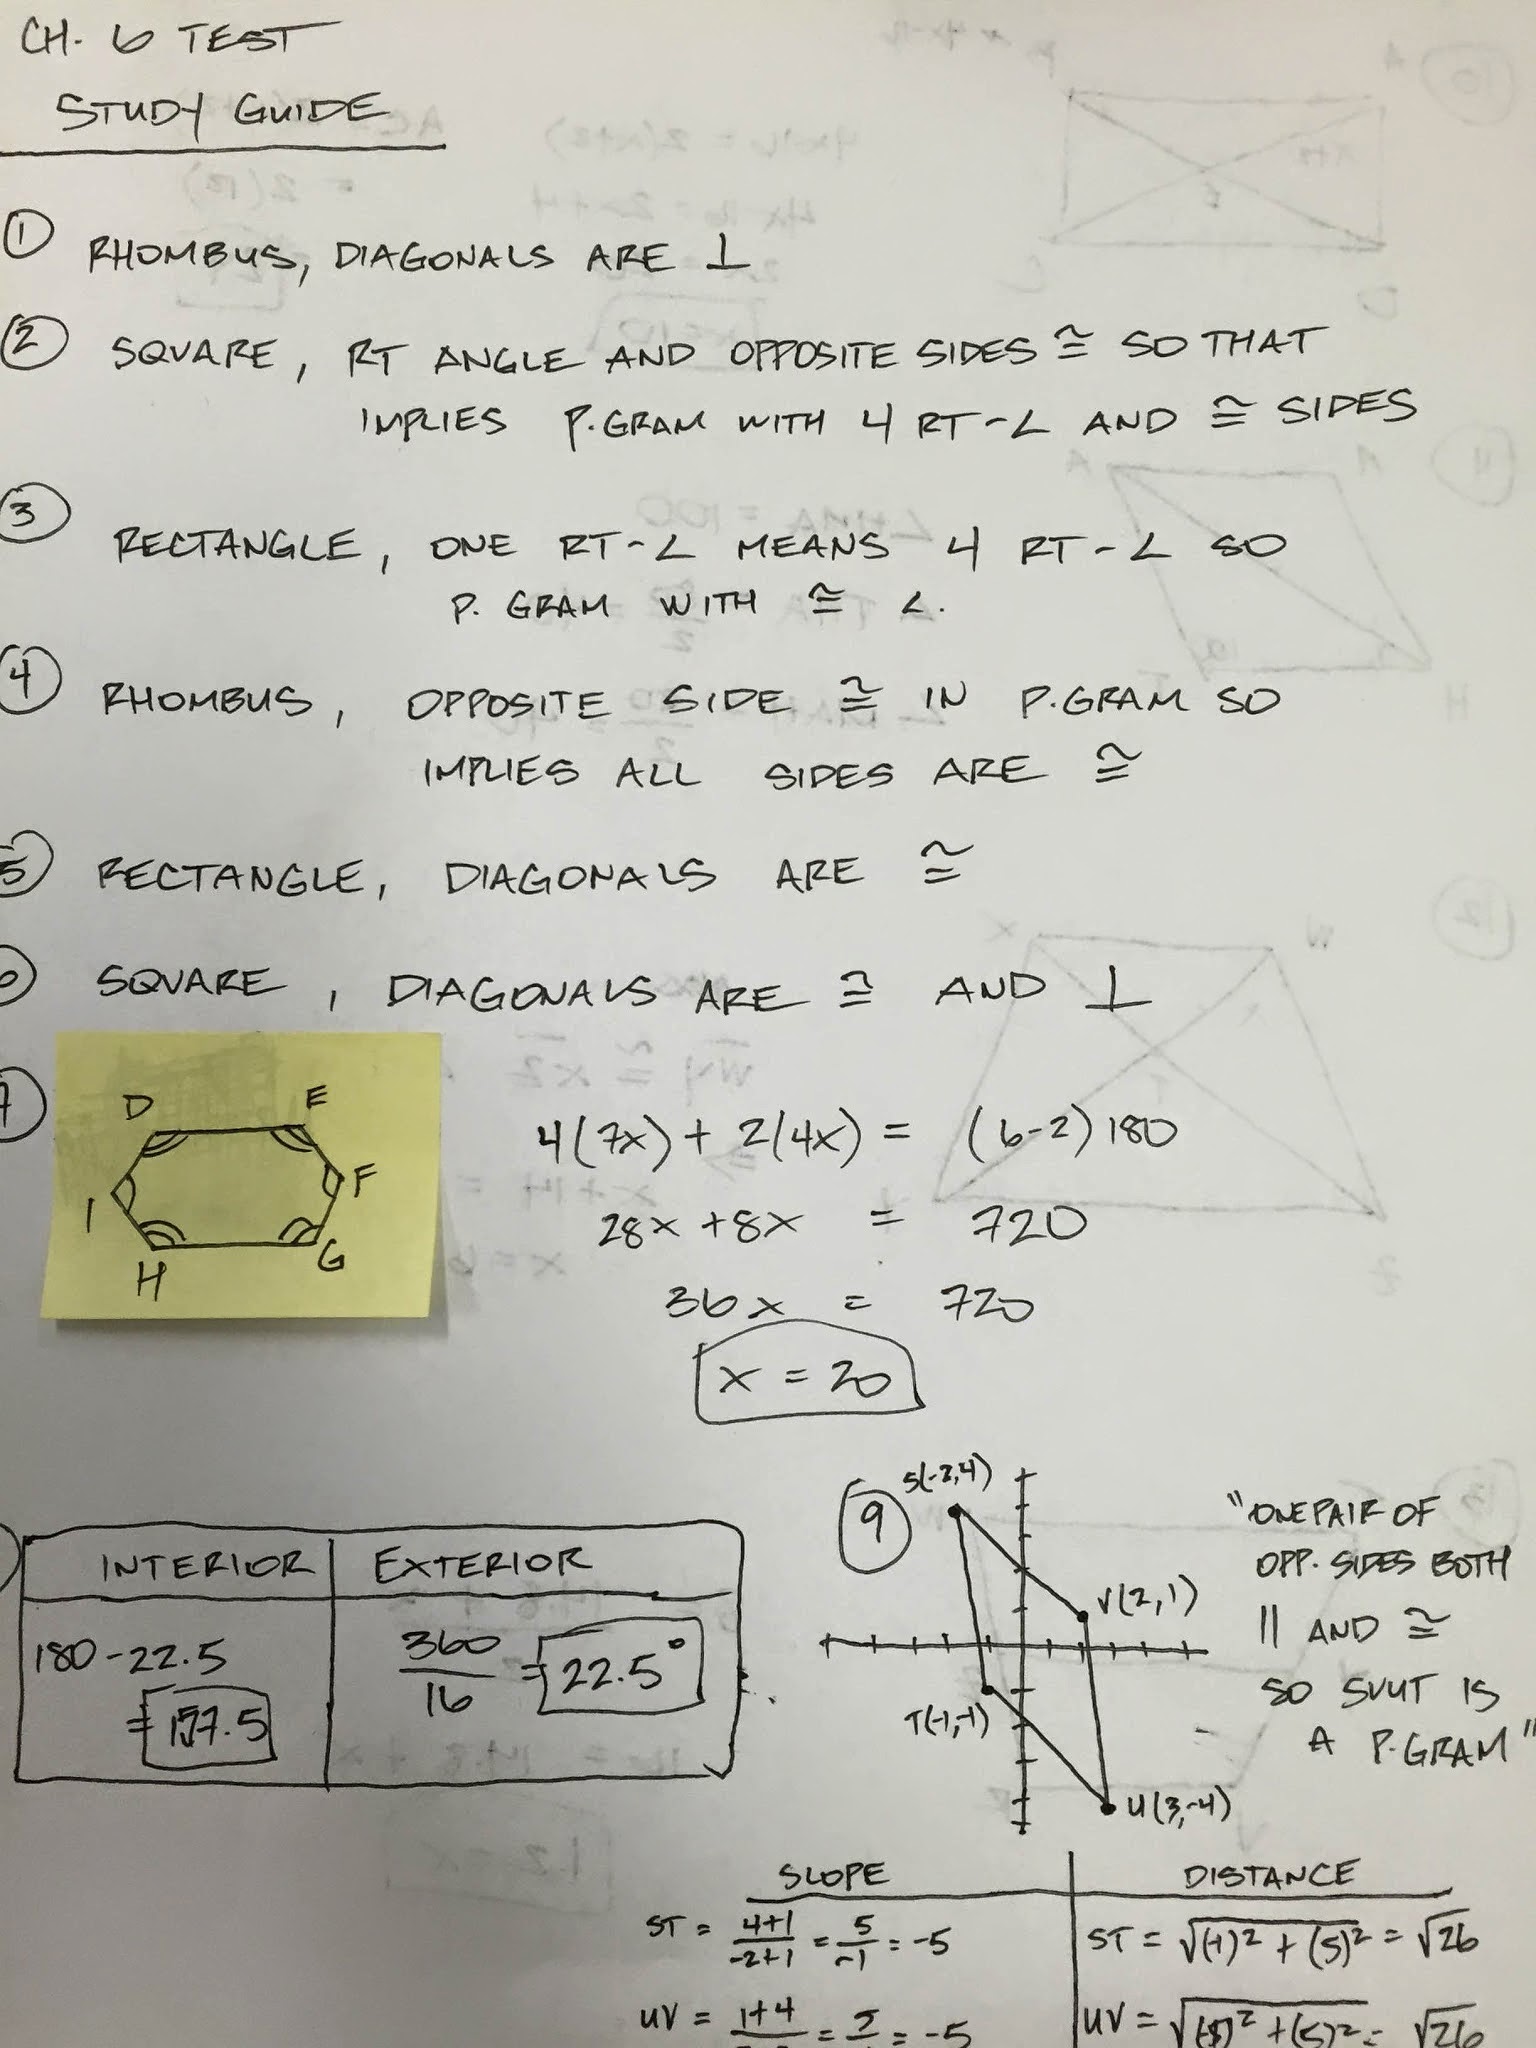 CH. 6 TEST
STUDY GUIDE
① RHOMBUS, DIAGONALS ARE ⊥
② SQUARE, RT ANGLE AND OPPOSITE SIDES ≅ SO THAT
IMPLIES P.GRAM WITH 4 RT-∠ AND ≅ SIDES
③ RECTANGLE, ONE RT-∠ MEANS 4 RT-∠ SO
P. GRAM WITH ≅ ∠.
④ RHOMBUS, OPPOSITE SIDE ≅ IN P.GRAM SO
IMPLIES ALL SIDES ARE ≅
⑤ RECTANGLE, DIAGONALS ARE ≅
⑥ SQUARE, DIAGONALS ARE ≅ AND ⊥
⑦
D E
F
I
H G
4(7x) + 2(4x) = (6-2)180
28x + 8x = 720
36x = 720
x = 20
INTERIOR EXTERIOR
180-22.5
= 157.5
360/16 = 22.5°
⑨
S(-2,4)
V(2,1)
T(-1,-1)
U(3,-4)
"ONE PAIR OF
OPP. SIDES BOTH
|| AND ≅
SO SVUT IS
A P.GRAM"
SLOPE DISTANCE
ST = 4+1/-2+1 = 5/-1 = -5 ST = √(-1)² + (5)² = √26
UV = 1+4 = -5 UV = √ + (5)² = √26